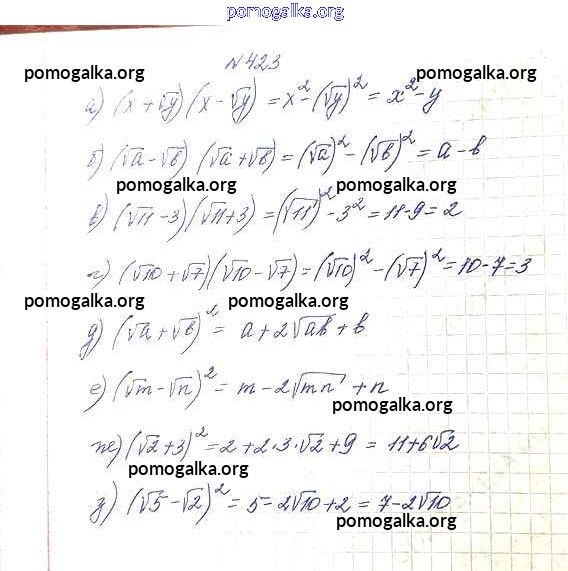 pomogalka.org
№423
pomogalka.org pomogalka.org
а) (x + √y) (x - √y) = x² - (√y)² = x² - y
б) (√a - √b) (√a + √b) = (√a)² - (√b)² = a - b
pomogalka.org pomogalka.org
в) (√11 - 3) (√11 + 3) = (√11)² - 3² = 11 - 9 = 2
г) (√10 + √7) (√10 - √7) = (√10)² - (√7)² = 10 - 7 = 3
pomogalka.org pomogalka.org
д) (√a + √b)² = a + 2√ab + b
е) (√m - √n)² = m - 2√mn + n
pomogalka.org
ж) (√2 + 3)² = 2 + 2·3·√2 + 9 = 11 + 6√2
pomogalka.org
з) (√5 - √2)² = 5 - 2√10 + 2 = 7 - 2√10
pomogalka.org